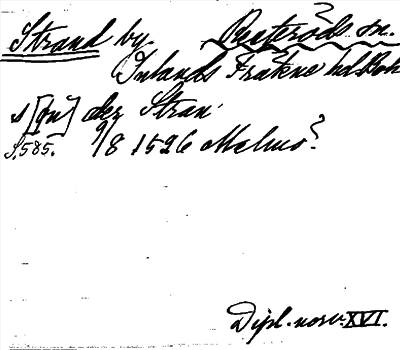 Strand by Resteröds sn.
Inlands Fräkne hd. Boh
s [qu] der Stran
S. 585. 9/8 1526 Malmö?
Dipl. norv. XVI.